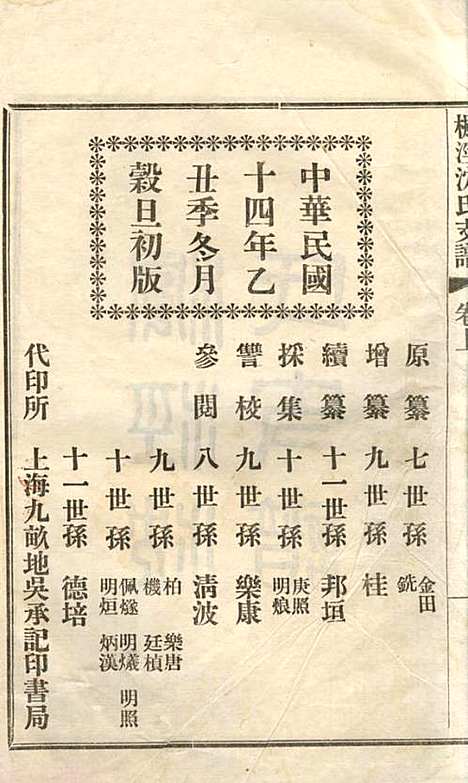 沈氏支譜 卷上
中華民國
十四年乙
丑季冬月
穀旦初版
原纂 七世孫 金田 銑
增纂 九世孫 桂
續纂 十一世孫 邦垣
採集 十世孫 庚照 明烺
讐校 九世孫 樂康
參閱 八世孫 清波
九世孫 柏 樂唐 機 廷楨
十世孫 佩燧 明爔 明照 明烜 炳漢
十一世孫 德培
代印所 上海九畝地吳承記印書局